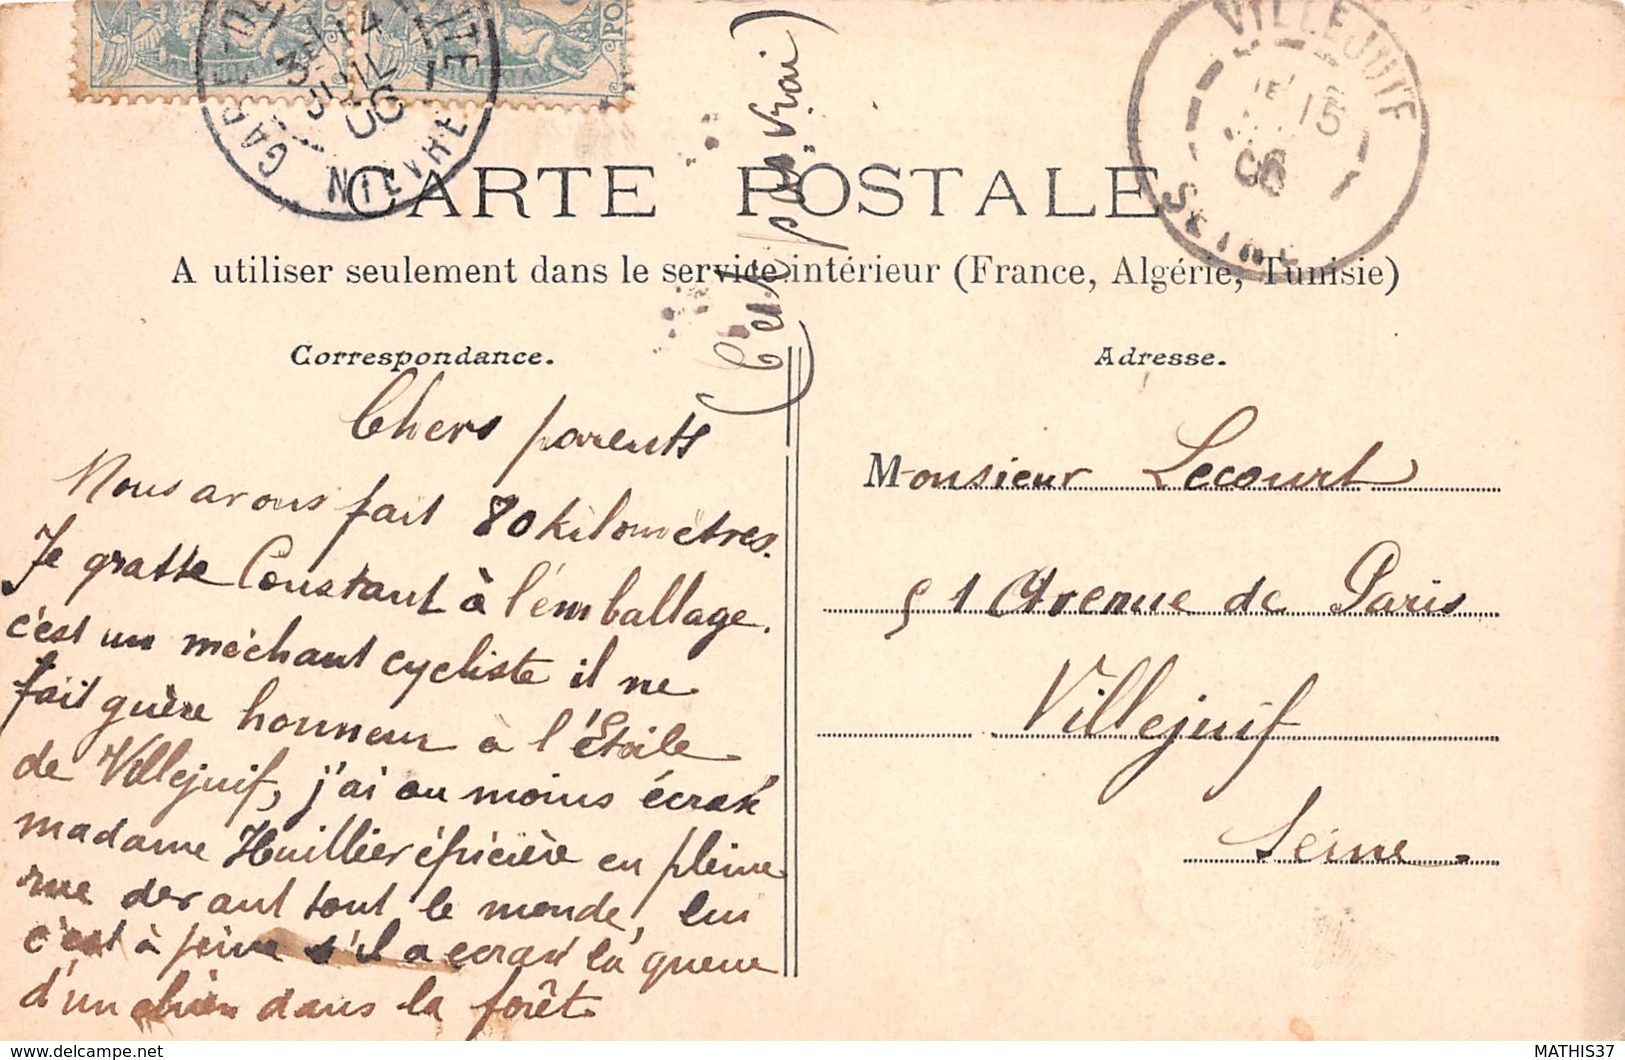 GARE-DE
NIEVRE
3E 14
JUIL
06
PO
PO
VILLEJUIF
1E 15
06
SEINE
CARTE POSTALE
A utiliser seulement dans le service intérieur (France, Algérie, Tunisie)
(C'est pas vrai)
Correspondance.
Chers parents
Nous avons fait 80 kilomètres.
Je gratte Constant à l'emballage.
c'est un méchant cycliste il ne
fait guère honneur à l'Étoile
de Villejuif, j'ai au moins écrasé
madame Huillier épicière en pleine
rue devant tout le monde, lui
c'est à peine s'il a écrasé la queue
d'un chien dans la forêt.
Adresse.
Monsieur Lecourt
51 Avenue de Paris
Villejuif
Seine.
MATHIS37